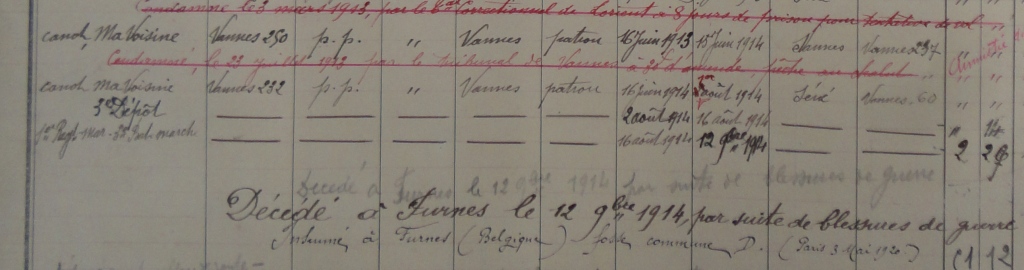 Condamné le 3 mars 1913, par le Tal Correctionnel de Lorient à 8 jours de prison pour tentative de vol
canot, Ma Voisine Vannes 250 p.p. " Vannes patron 16 juin 1913 15 juin 1914 Vannes Vannes 237 "
Condamné, le 23 juillet par le tribunal de Vannes à d'amende, pêche au chalut "
canot Ma Voisine Vannes 232 p.p. " Vannes patron 16 juin 1914 août 1914 Séné Vannes 60 " "
3e Dépôt 2 août 1914 16 août 1914 " 14
1er Regt. mar. - march 16 août 1914 12 9bre 1914 2 2
Décédé à Furnes le 12 9bre 1914 par suite de blessures de guerre
Décédé à Furnes le 12 9bre 1914, par suite de blessures de guerre
Inhumé à Furnes (Belgique) fosse commune D. (Paris 3 Mai 1920)
12